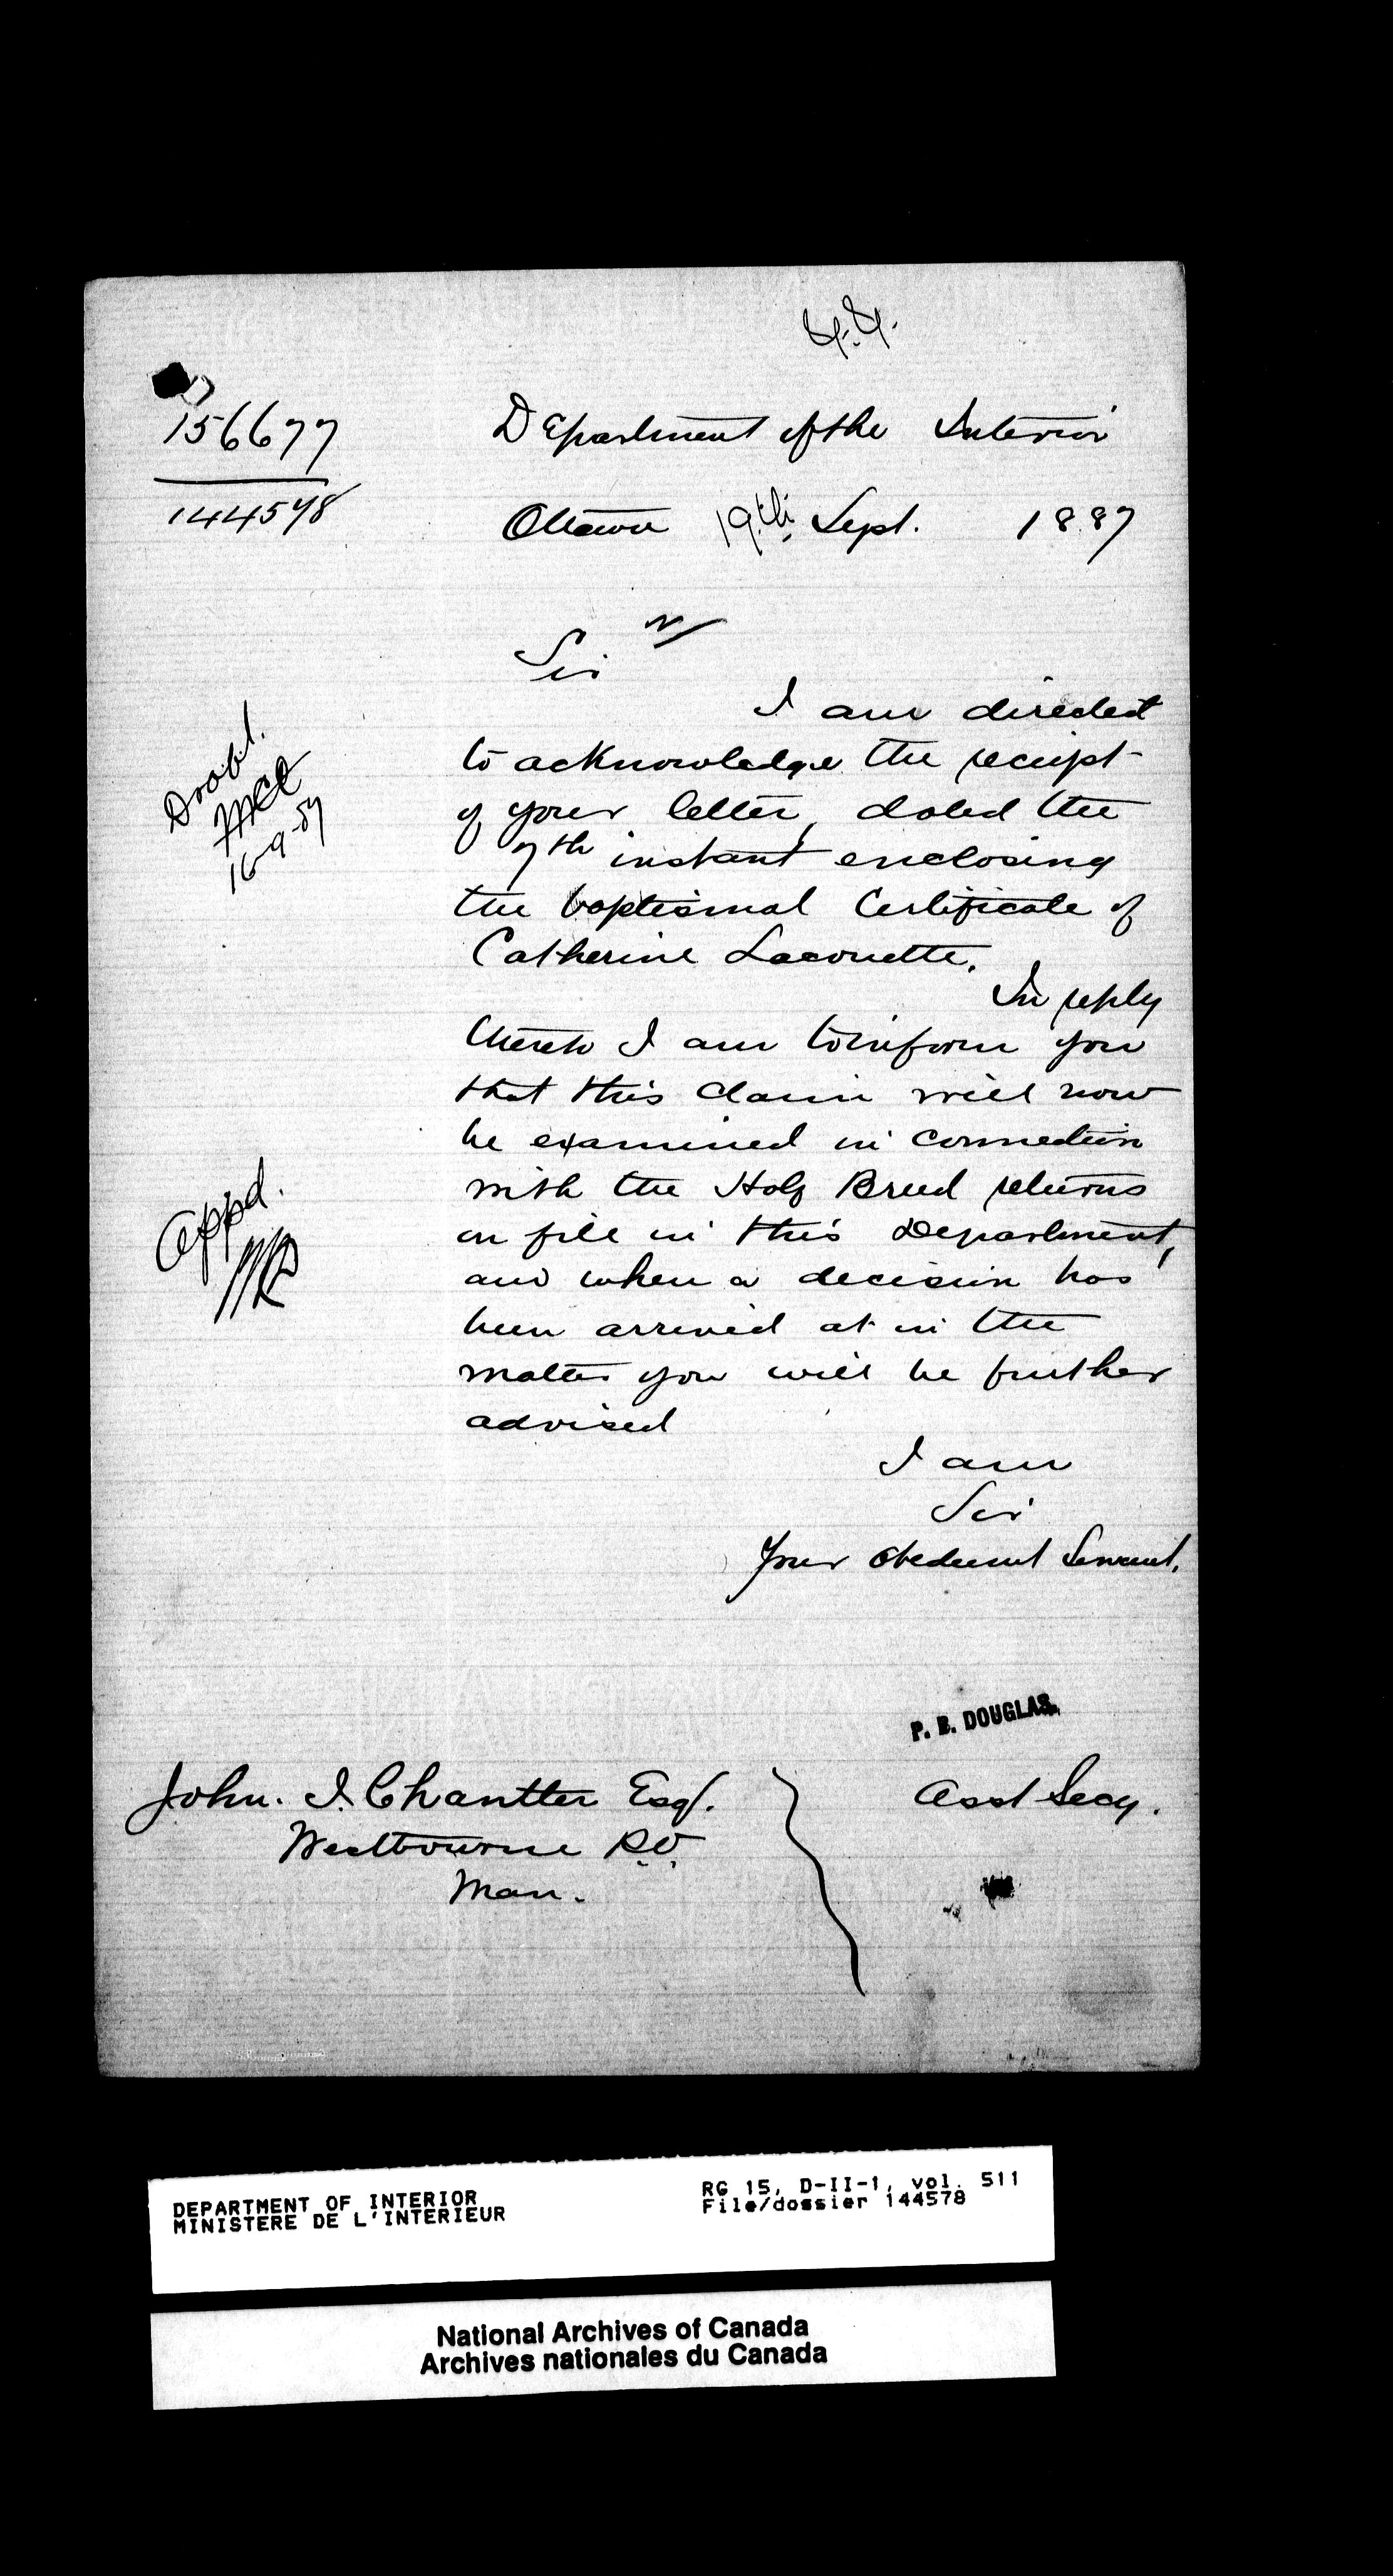 156677
144578
Department of the Interior
Ottawa 19th. Sept. 1887
Sir
I am directed
to acknowledge the receipt
of your letter, dated the
7th instant enclosing
the baptismal Certificate of
Catherine Lacouette.
In reply
thereto I am to inform you
that this claim will now
be examined in connection
with the Half Breed returns
on file in this Department,
and when a decision has
been arrived at in the
matter you will be further
advised
I am
Sir
Your obedient Servant,
P. B. DOUGLAS.
Asst Secy.
John. I. Chantler Esq.
Westbourne P.O.
Man.
16-9-87
Appd.
DEPARTMENT OF INTERIOR
MINISTERE DE L'INTERIEUR
RG 15, D-II-1, vol. 511
File/dossier 144578
National Archives of Canada
Archives nationales du Canada